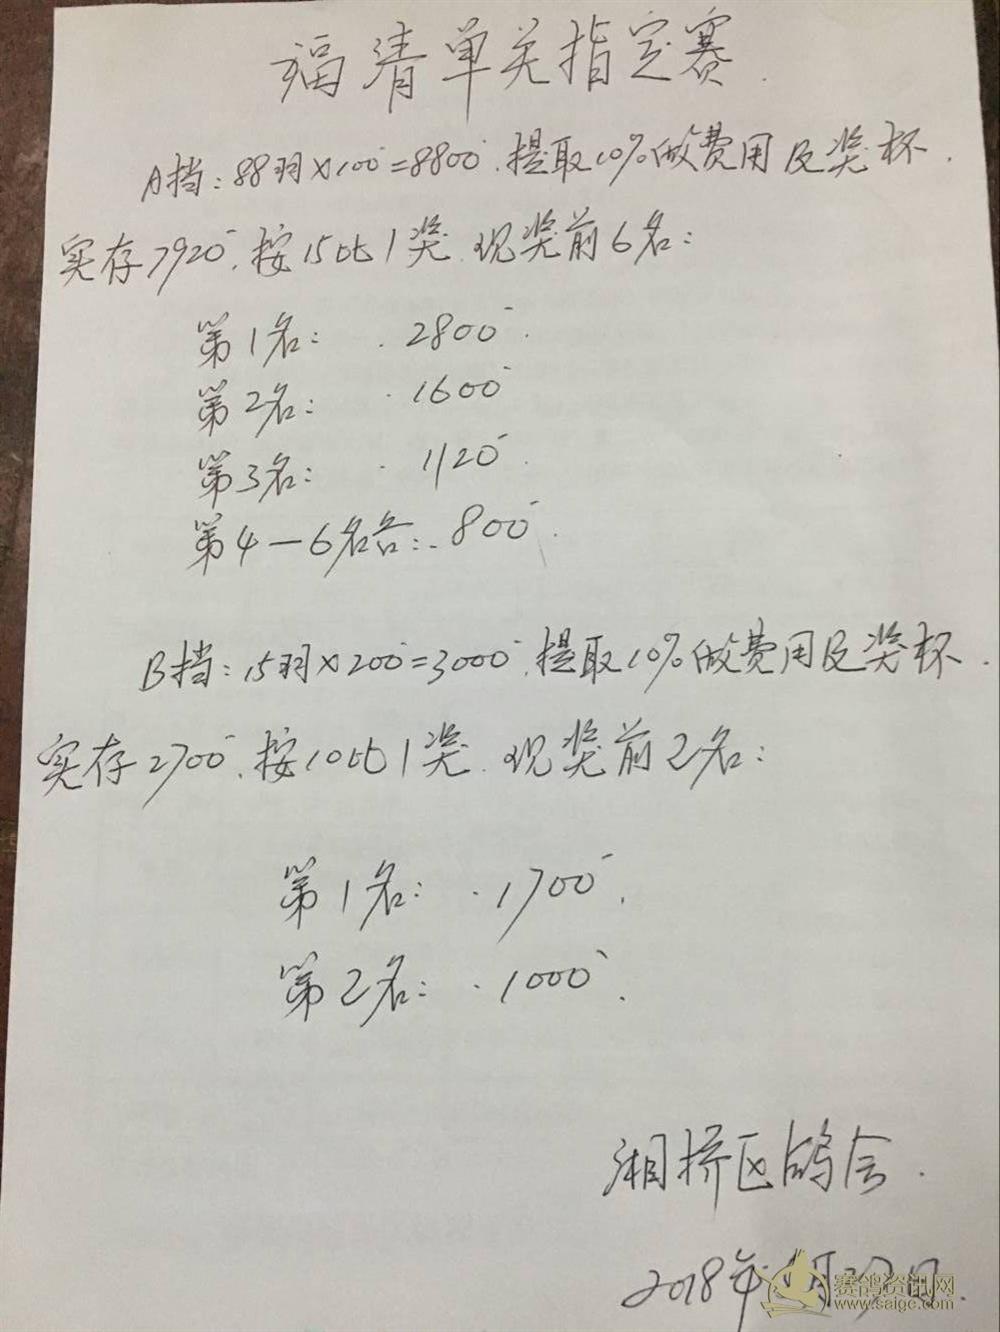 福清单关指定赛.
A挡:88羽×100=8800.提取10%做费用及奖杯.
实存7920.按15比1奖.现奖前6名:
第1名: 2800.
第2名: 1600
第3名: 1120.
第4-6名各: 800.
B挡:15羽×200=3000.提取10%做费用及奖杯.
实存2700.按10比1奖.现奖前2名:
第1名: 1700.
第2名: 1000.
湘桥区鸽会.
2018年 月 日.
赛鸽资讯网
www.saige.com